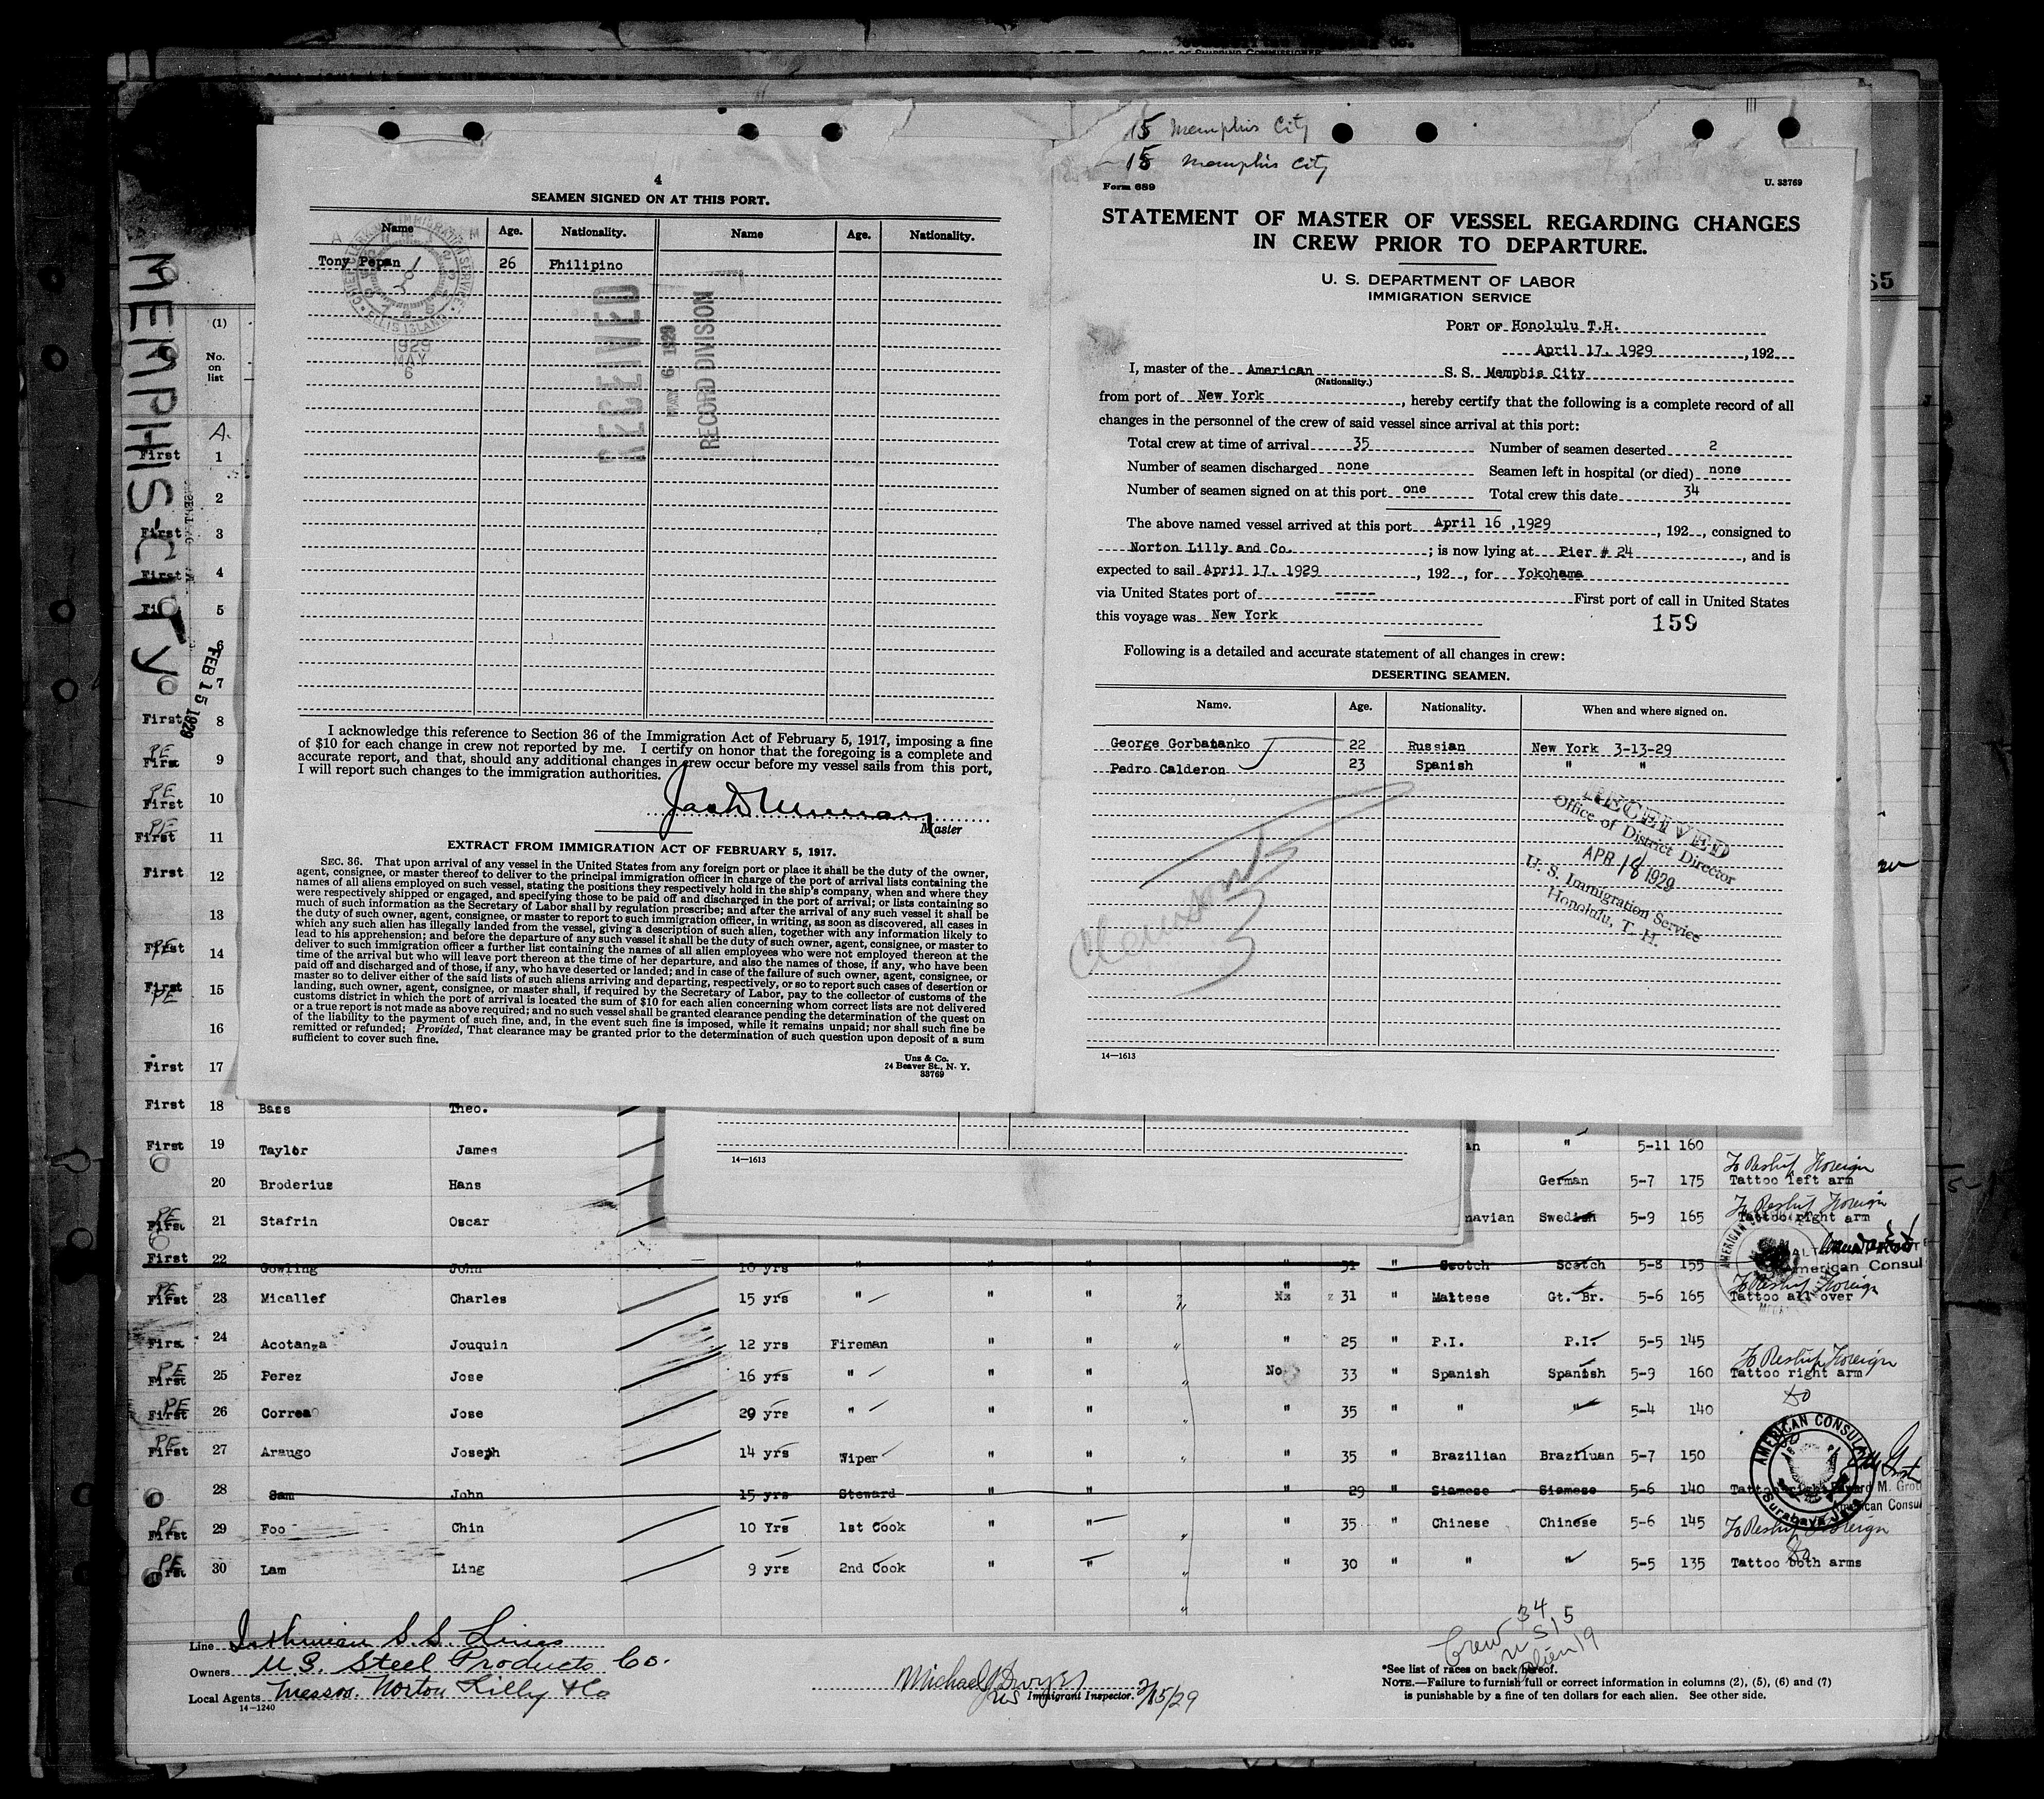 15 Memphis City
15 Memphis City
MEMPHIS CITY
FEB 15 1929
4
SEAMEN SIGNED ON AT THIS PORT.
Name Age. Nationality. Name Age. Nationality.
Tony Pepan 26 Philipino
ELLIS ISLAND
1929
MAY
6
RECEIVED
MAY 6 1929
RECORD DIVISION
I acknowledge this reference to Section 36 of the Immigration Act of February 5, 1917, imposing a fine
of $10 for each change in crew not reported by me. I certify on honor that the foregoing is a complete and
accurate report, and that, should any additional changes in crew occur before my vessel sails from this port,
I will report such changes to the immigration authorities.
Master
EXTRACT FROM IMMIGRATION ACT OF FEBRUARY 5, 1917.
SEC. 36. That upon arrival of any vessel in the United States from any foreign port or place it shall be the duty of the owner,
agent, consignee, or master thereof to deliver to the principal immigration officer in charge of the port of arrival lists containing the
names of all aliens employed on such vessel, stating the positions they respectively hold in the ship's company, when and where they
were respectively shipped or engaged, and specifying those to be paid off and discharged in the port of arrival; or lists containing so
much of such information as the Secretary of Labor shall by regulation prescribe; and after the arrival of any such vessel it shall be
the duty of such owner, agent, consignee, or master to report to such immigration officer, in writing, as soon as discovered, all cases in
which any such alien has illegally landed from the vessel, giving a description of such alien, together with any information likely to
lead to his apprehension; and before the departure of any such vessel it shall be the duty of such owner, agent, consignee, or master to
deliver to such immigration officer a further list containing the names of all alien employees who were not employed thereon at the
time of the arrival but who will leave port thereon at the time of her departure, and also the names of those, if any, who have been
paid off and discharged and of those, if any, who have deserted or landed; and in case of the failure of such owner, agent, consignee, or
master so to deliver either of the said lists of such aliens arriving and departing, respectively, or so to report such cases of desertion or
landing, such owner, agent, consignee, or master shall, if required by the Secretary of Labor, pay to the collector of customs of the
customs district in which the port of arrival is located the sum of $10 for each alien concerning whom correct lists are not delivered
or a true report is not made as above required; and no such vessel shall be granted clearance pending the determination of the quest on
of the liability to the payment of such fine, and, in the event such fine is imposed, while it remains unpaid; nor shall such fine be
remitted or refunded; Provided, That clearance may be granted prior to the determination of such question upon deposit of a sum
sufficient to cover such fine.
Unz & Co.
24 Beaver St., N. Y.
33769
Form 689 U. 33769
STATEMENT OF MASTER OF VESSEL REGARDING CHANGES
IN CREW PRIOR TO DEPARTURE.
U. S. DEPARTMENT OF LABOR
IMMIGRATION SERVICE
PORT OF Honolulu T.H.
April 17. 1929 , 192
I, master of the American S. S. Memphis City
(Nationality.)
from port of New York , hereby certify that the following is a complete record of all
changes in the personnel of the crew of said vessel since arrival at this port:
Total crew at time of arrival 35 Number of seamen deserted 2
Number of seamen discharged none Seamen left in hospital (or died) none
Number of seamen signed on at this port one Total crew this date 34
The above named vessel arrived at this port April 16 ,1929 , 192 , consigned to
Norton Lilly and Co. ; is now lying at Pier # 24 , and is
expected to sail April 17. 1929 , 192 , for Yokohama
via United States port of ----- First port of call in United States
this voyage was New York
159
Following is a detailed and accurate statement of all changes in crew:
DESERTING SEAMEN.
Name. Age. Nationality. When and where signed on.
George Gorbatanko 22 Russian New York 3-13-29
Pedro Calderon 23 Spanish " "
RECEIVED
Office of District Director
APR 18 1929
U. S. Immigration Service
Honolulu, T. H.
14—1613
65
(1)
No.
on
list
A.
First 1
2
First 3
First 4
5
6
7
First 8
PE First 9
PE First 10
PE First 11
First 12
13
PE First 14
First PE 15
16
First 17
First 18 Bass Theo.
14—1613
First 19 Taylor James " 5-11 160
20 Broderius Hans German 5-7 175 To Reship Foreign Tattoo left arm
PE First 21 Stafrin Oscar navian Swedish 5-9 165 To Reship Foreign Tattoo right arm
First 22 Gowling John 10 yrs " " " " 31 " Scotch Scotch 5-8 155
American Consul
PE First 23 Micallef Charles 15 yrs " " " " 31 " Maltese Gt. Br. 5-6 165 To Reship Foreign Tattoo all over
First 24 Acotanza Jouquin 12 yrs Fireman " " " " 25 " P.I. P.I. 5-5 145
PE First 25 Perez Jose 16 yrs " " " " No 33 " Spanish Spanish 5-9 160 To Reship Foreign Tattoo right arm
PE First 26 Correa Jose 29 yrs " " " " " 35 " " " 5-4 140 do
PE First 27 Araugo Joseph 14 yrs Wiper " " " " 35 " Brazilian Braziluan 5-7 150
28 Sam John 15 yrs Steward " " " 29 " Siamese Siamese 5-6 140
AMERICAN CONSULATE
Surabaya Java
American Consul
PE First 29 Foo Chin 10 Yrs 1st Cook " " " " 35 " Chinese Chinese 5-6 145 To Reship Foreign
PE First 30 Lam Ling 9 yrs 2nd Cook " " " " 30 " " " 5-5 135 do Tattoo both arms
Line Isthmian S.S. Lines
Owners U.S. Steel Products Co.
Local Agents Messrs. Norton Lilly & Co
14—1240
Michael J Dwyer
US Immigrant Inspector. 2/15/29
Crew 34
US 15
Alien 19
*See list of races on back hereof.
NOTE.—Failure to furnish full or correct information in columns (2), (5), (6) and (7)
is punishable by a fine of ten dollars for each alien. See other side.